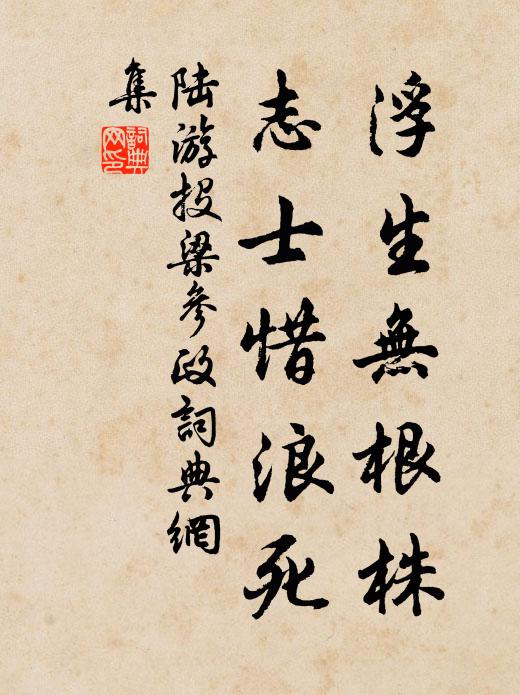 浮生無根株
志士惜浪死
陆游投梁參政詞典網
集
詞典
网印